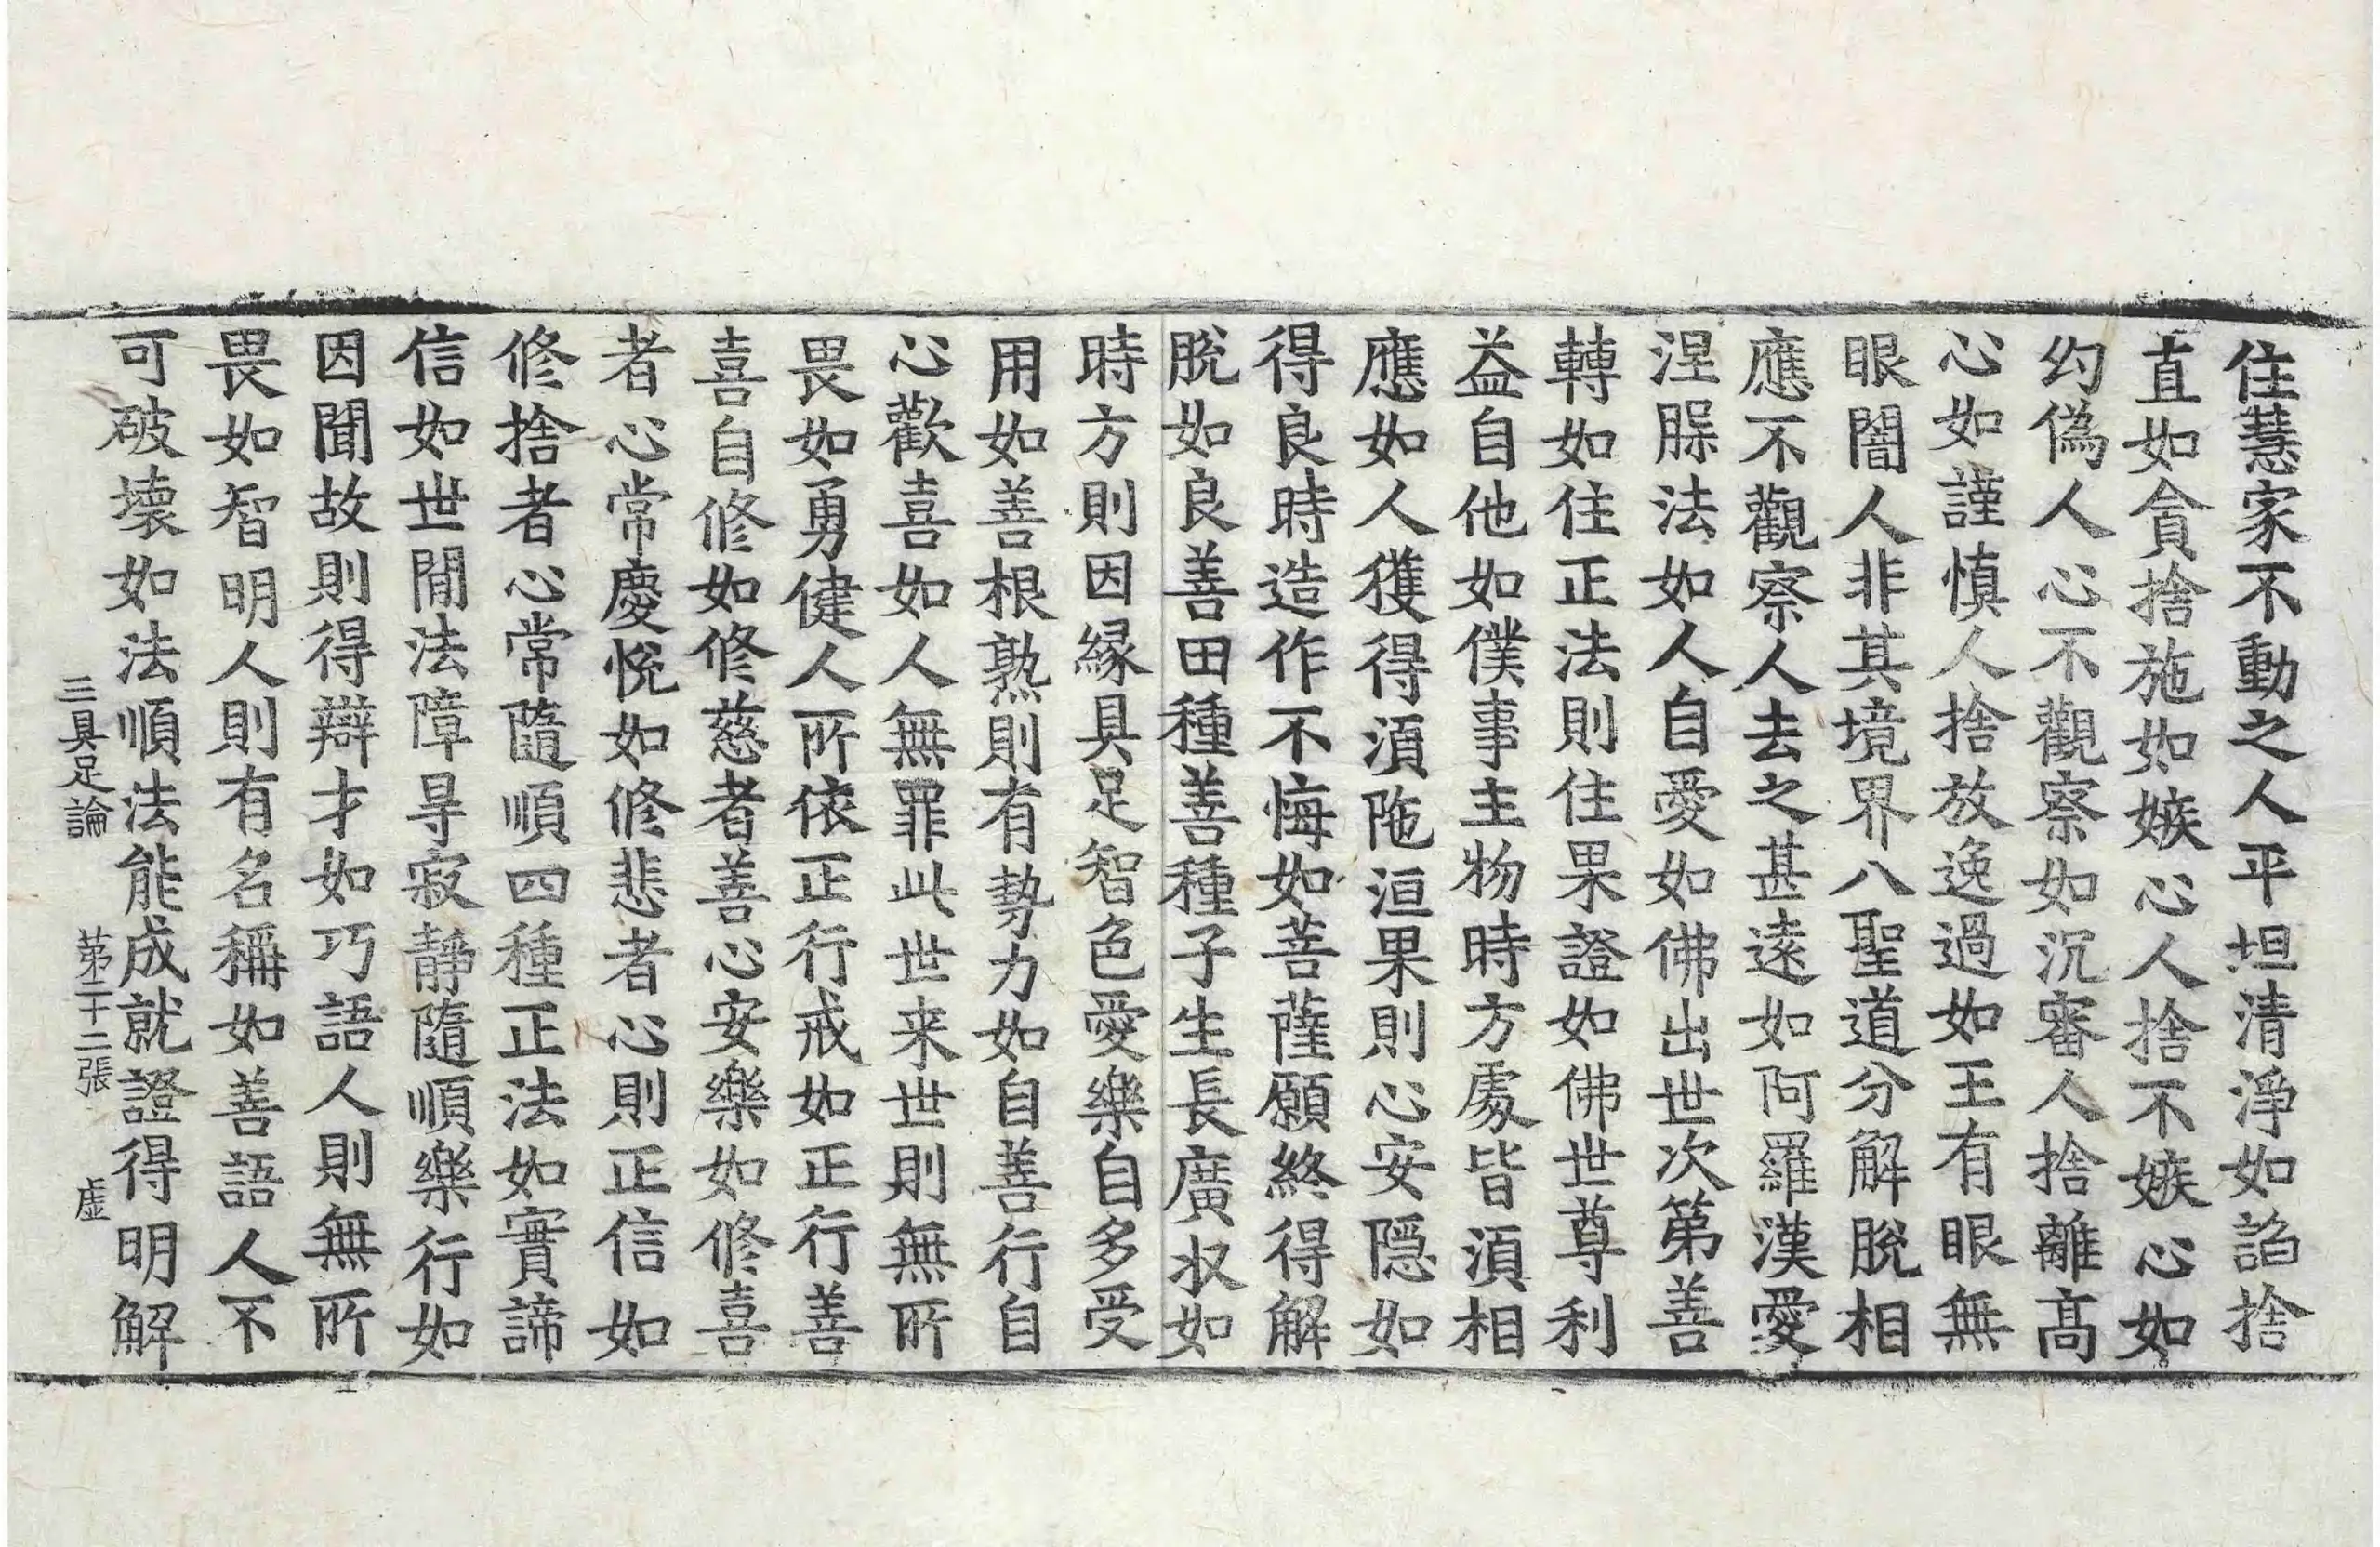 住慧家不動之人平坦清淨如諂捨
直如貪捨施如嫉心人捨不嫉心如
幻偽人心不觀察如沉審人捨離髙
心如謹慎人捨放逸過如王有眼無
眼闇人非其境界八聖道分解脫相
應不觀察人去之甚遠如阿羅漢愛
涅脵法如人自愛如佛出世次第善
轉如住正法則住果證如佛世尊利
益自他如僕事主物時方處皆湏相
應如人獲得湏陁洹果則心安隱如
得良時造作不悔如菩薩願終得解
脫如良善田種善種子生長廣收如
時方則因緣具足智色愛樂自多受
用如善根熟則有勢力如自善行自
心歡喜如人無罪此世来世則無所
畏如勇健人所依正行戒如正行善
喜自修如修慈者善心安樂如修喜
者心常慶悅如修悲者心則正信如
修捨者心常隨順四種正法如實諦
信如世閒法障㝵寂靜隨順樂行如
因聞故則得辯才如巧語人則無所
畏如智明人則有名稱如善語人不
可破壊如法順法能成就證得明解
三具足論　第二十二張　虛